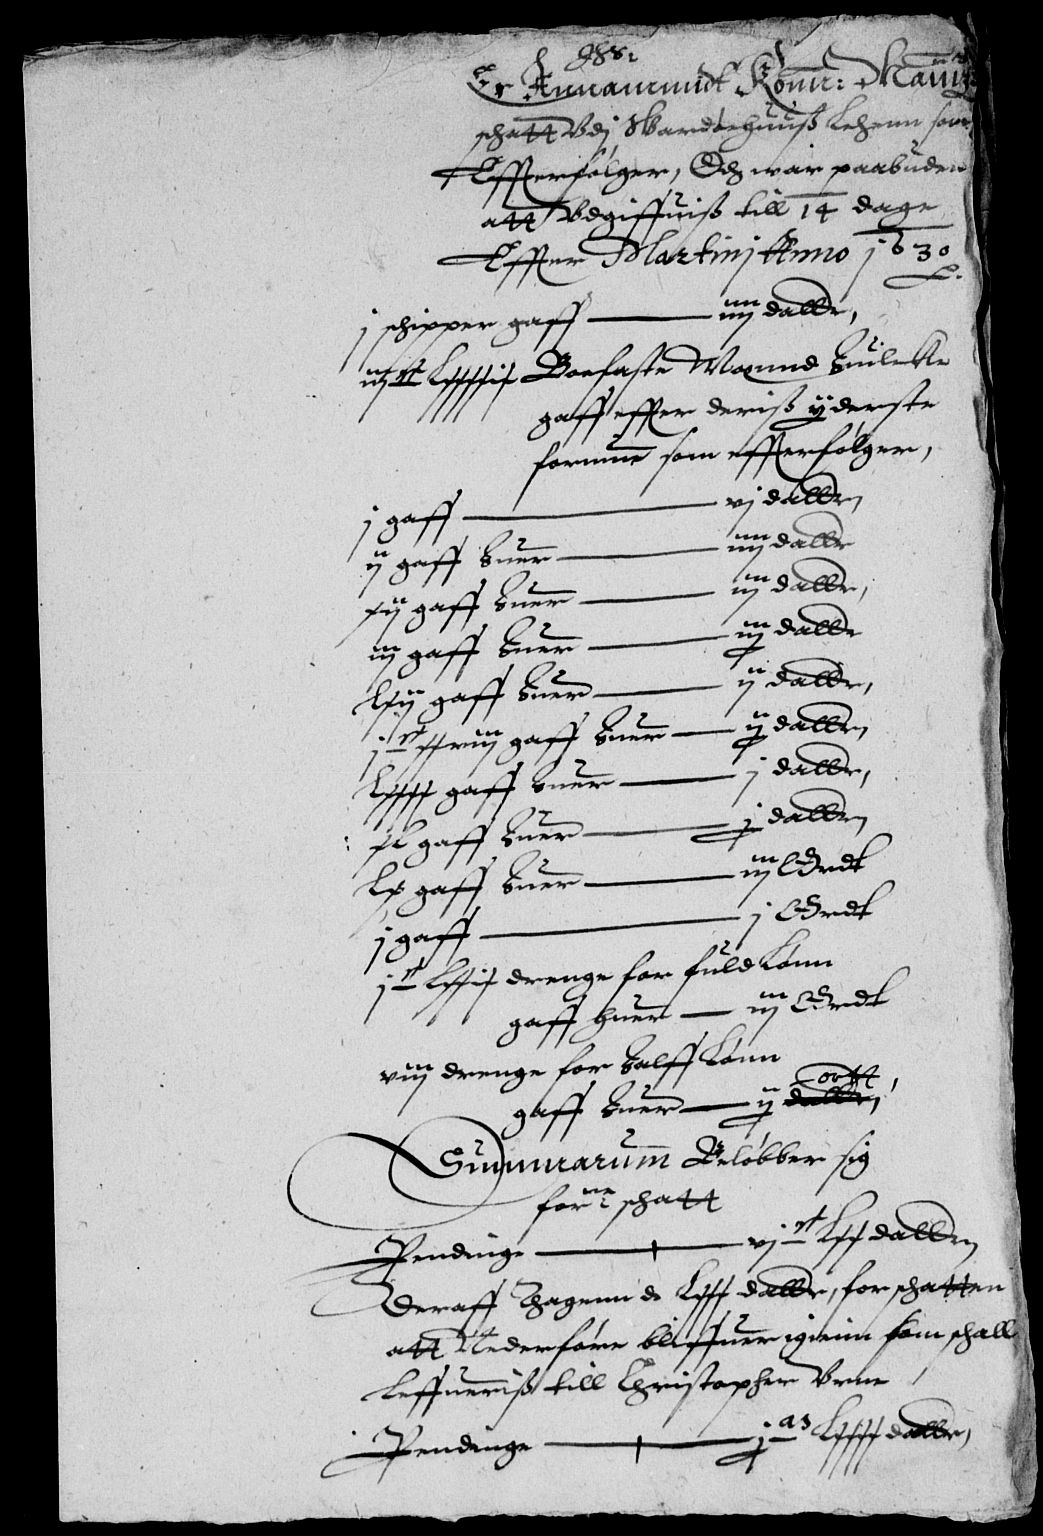 Er Annammidt Konn: Maÿtz
schatt vdj Wardøehuuß Lehenn som
Effterfølger, Och war paabuden
att vdgiffuiß till 14 dage
Effter Martinj Anno 1630
j schipper gaff — iiij daller,
Boefaste Mannd huilcke
gaff effter deriß ÿderste
formue som effterfølger,
j gaff — vj daller
ij gaff huer — iiij daller
xij gaff huer — iij daller,
iij gaff huer — daller
lxij gaff huer — ij daller,
gaff huer — daller
lxxxx gaff huer — j daller,
xl gaff huer — daller
lx gaff huer — iij Ordt
j gaff — j Ordt
drenge for fuld Lønn
gaff huer — iij Ordt
viij drenge for halff Lønn
gaff huer — ortt,
Summarum Beløbber sig
forne: schatt
Pendinge — vj st lxx daller
Deraff thagenn de lxxx daller, for schatten
att Nederføre bliffuer igienn som schall
Leffueriß till Christopher Vrne
Pendinge — daller,